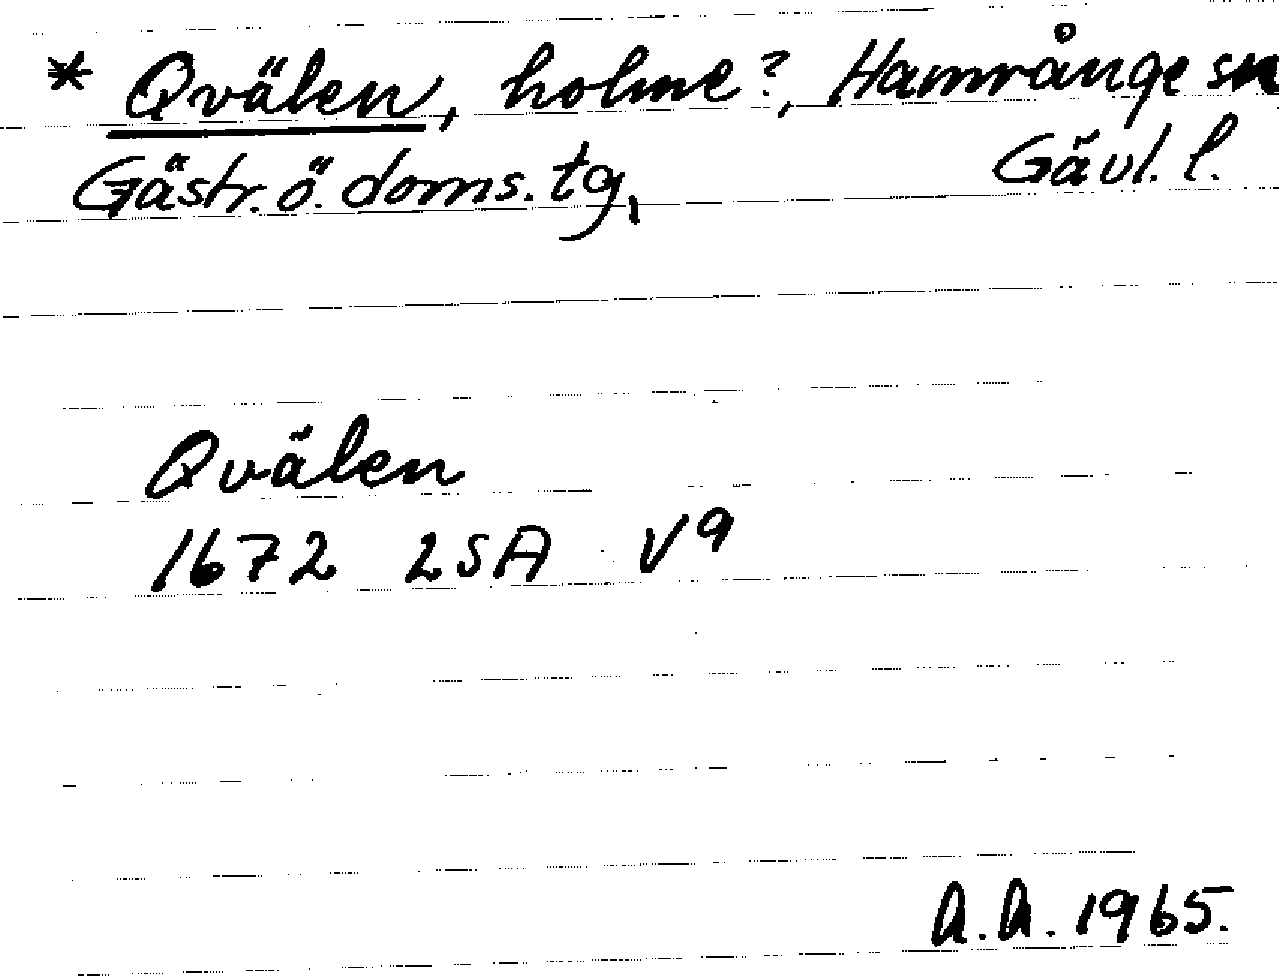 * Qvälen, holme?, Hamrånge sn
Gästr. ö. doms. tg, Gävl. l.
Qvälen
1672 LSA V9
A.A. 1965.